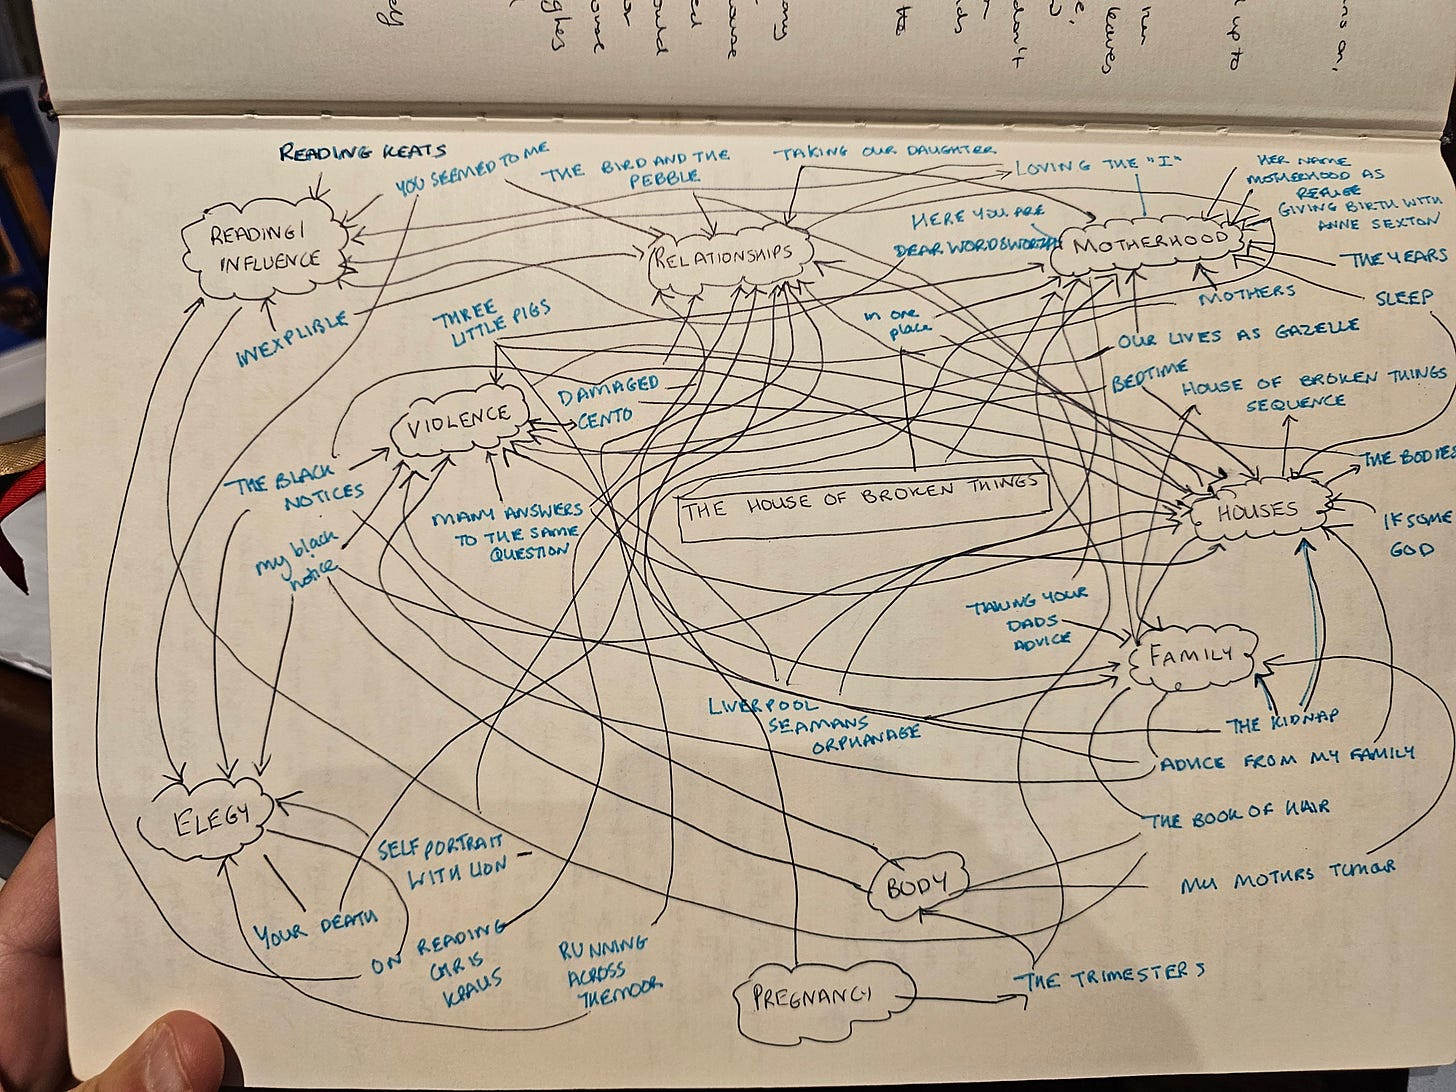 READING KEATS
YOU SEEMED TO ME
THE BIRD AND THE
PEBBLE
TAKING OUR DAUGHTER
LOVING THE "I"
HER NAME
MOTHERHOOD AS
REFUGE
GIVING BIRTH WITH
ANNE SEXTON
READING/
INFLUENCE
RELATIONSHIPS
HERE YOU ARE
DEAR WORDSWORTH
MOTHERHOOD
THE YEARS
SLEEP
MOTHERS
INEXPLIBLE
THREE
LITTLE PIGS
in one
place
OUR LIVES AS GAZELLE
BEDTIME
HOUSE OF BROKEN THINGS
SEQUENCE
VIOLENCE
DAMAGED
CENTO
THE BLACK
NOTICES
MANY ANSWERS
TO THE SAME
QUESTION
THE HOUSE OF BROKEN THINGS
HOUSES
THE BODIES
IF SOME
GOD
my black
notice
TAKING YOUR
DADS
ADVICE
FAMILY
LIVERPOOL
SEAMANS
ORPHANAGE
THE KIDNAP
ADVICE FROM MY FAMILY
THE BOOK OF HAIR
MY MOTHRS TUMOUR
ELEGY
SELF PORTRAIT
WITH LION
BODY
YOUR DEATH
ON READING
CHRIS
KRAUS
RUNNING
ACROSS
THE MOOR
PREGNANCY
THE TRIMESTERS